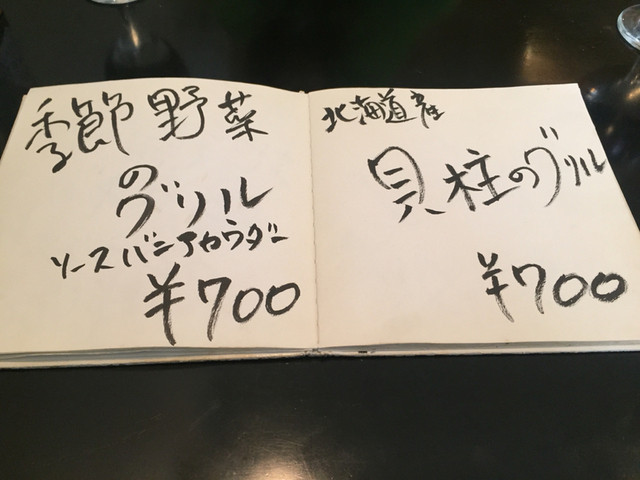 季節野菜
の
グリル
ソースバニアカウダー
¥700
北海道産
貝柱のグリル
¥700